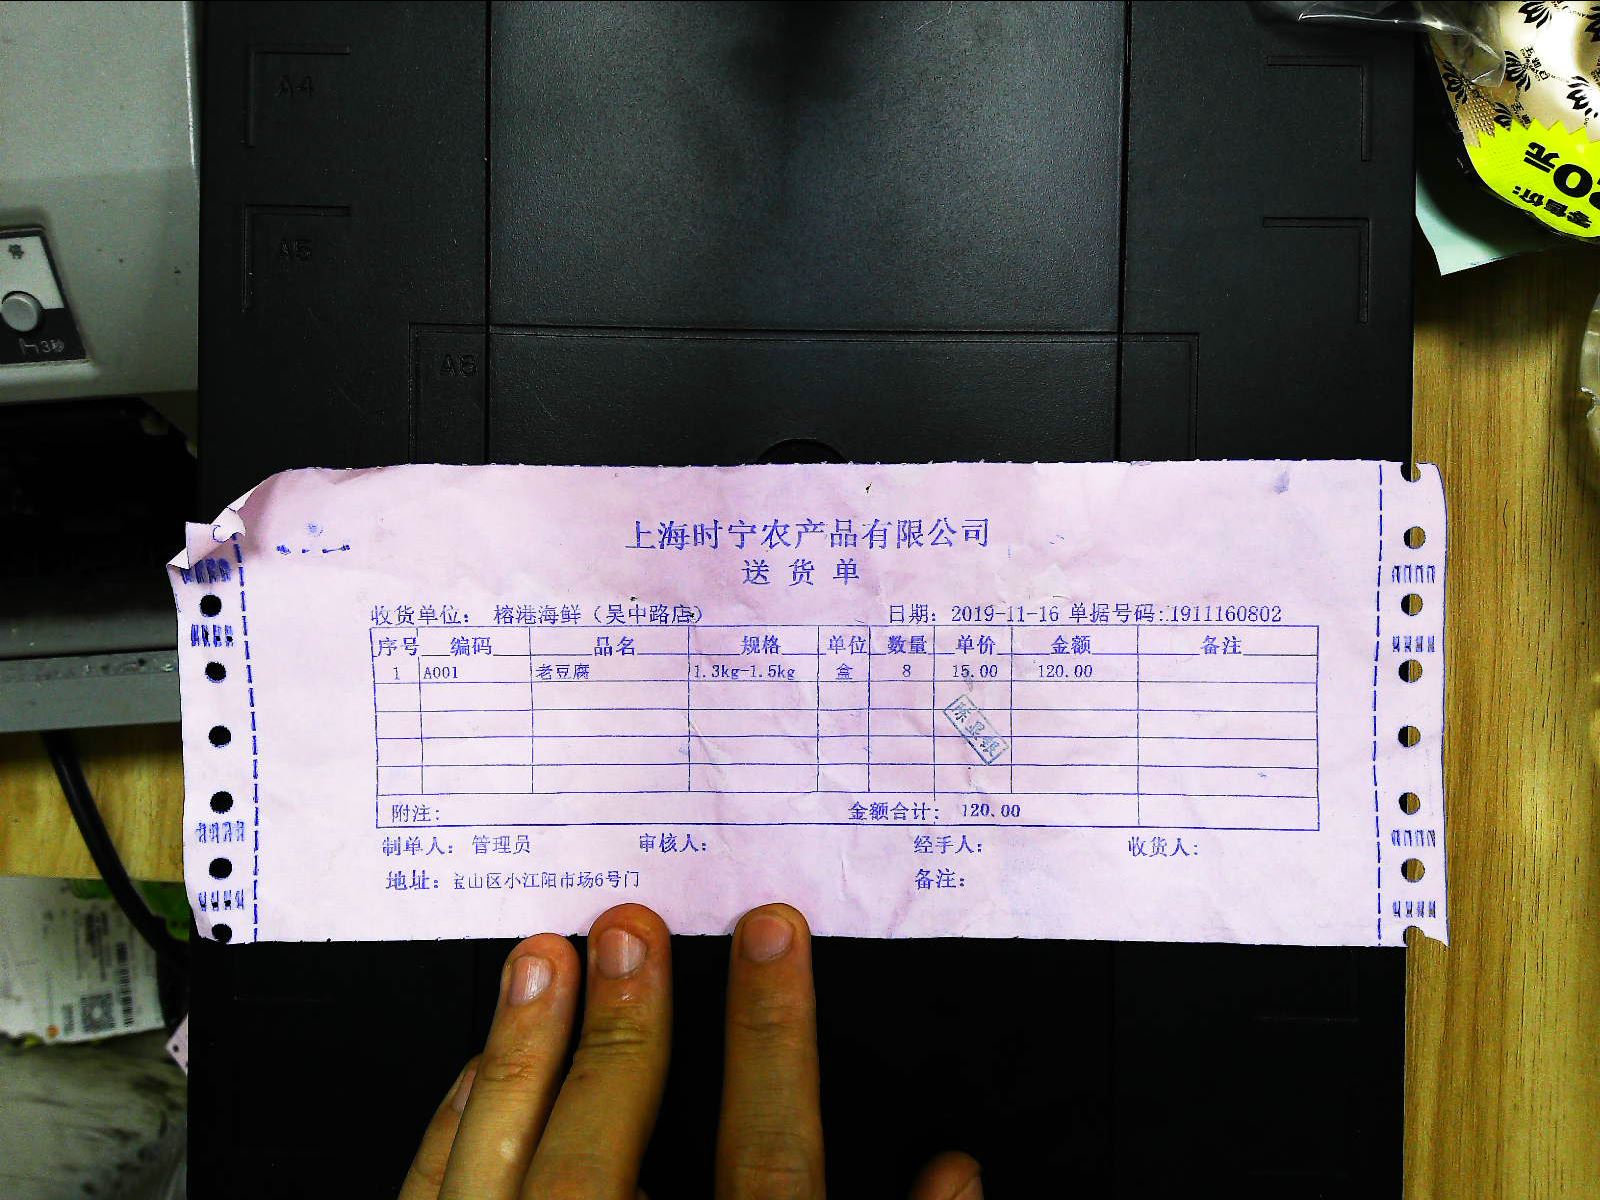 A4
A5
A6
停
3秒
零售价:
0元
上海时宁农产品有限公司
送 货 单
收货单位: 榕港海鲜（吴中路店） 日期: 2019-11-16 单据号码: 1911160802
序号 编码 品名 规格 单位 数量 单价 金额 备注
1 A001 老豆腐 1.3kg-1.5kg 盒 8 15.00 120.00
附注: 金额合计: 120.00
制单人: 管理员 审核人: 经手人: 收货人:
地址: 宝山区小江阳市场6号门 备注: